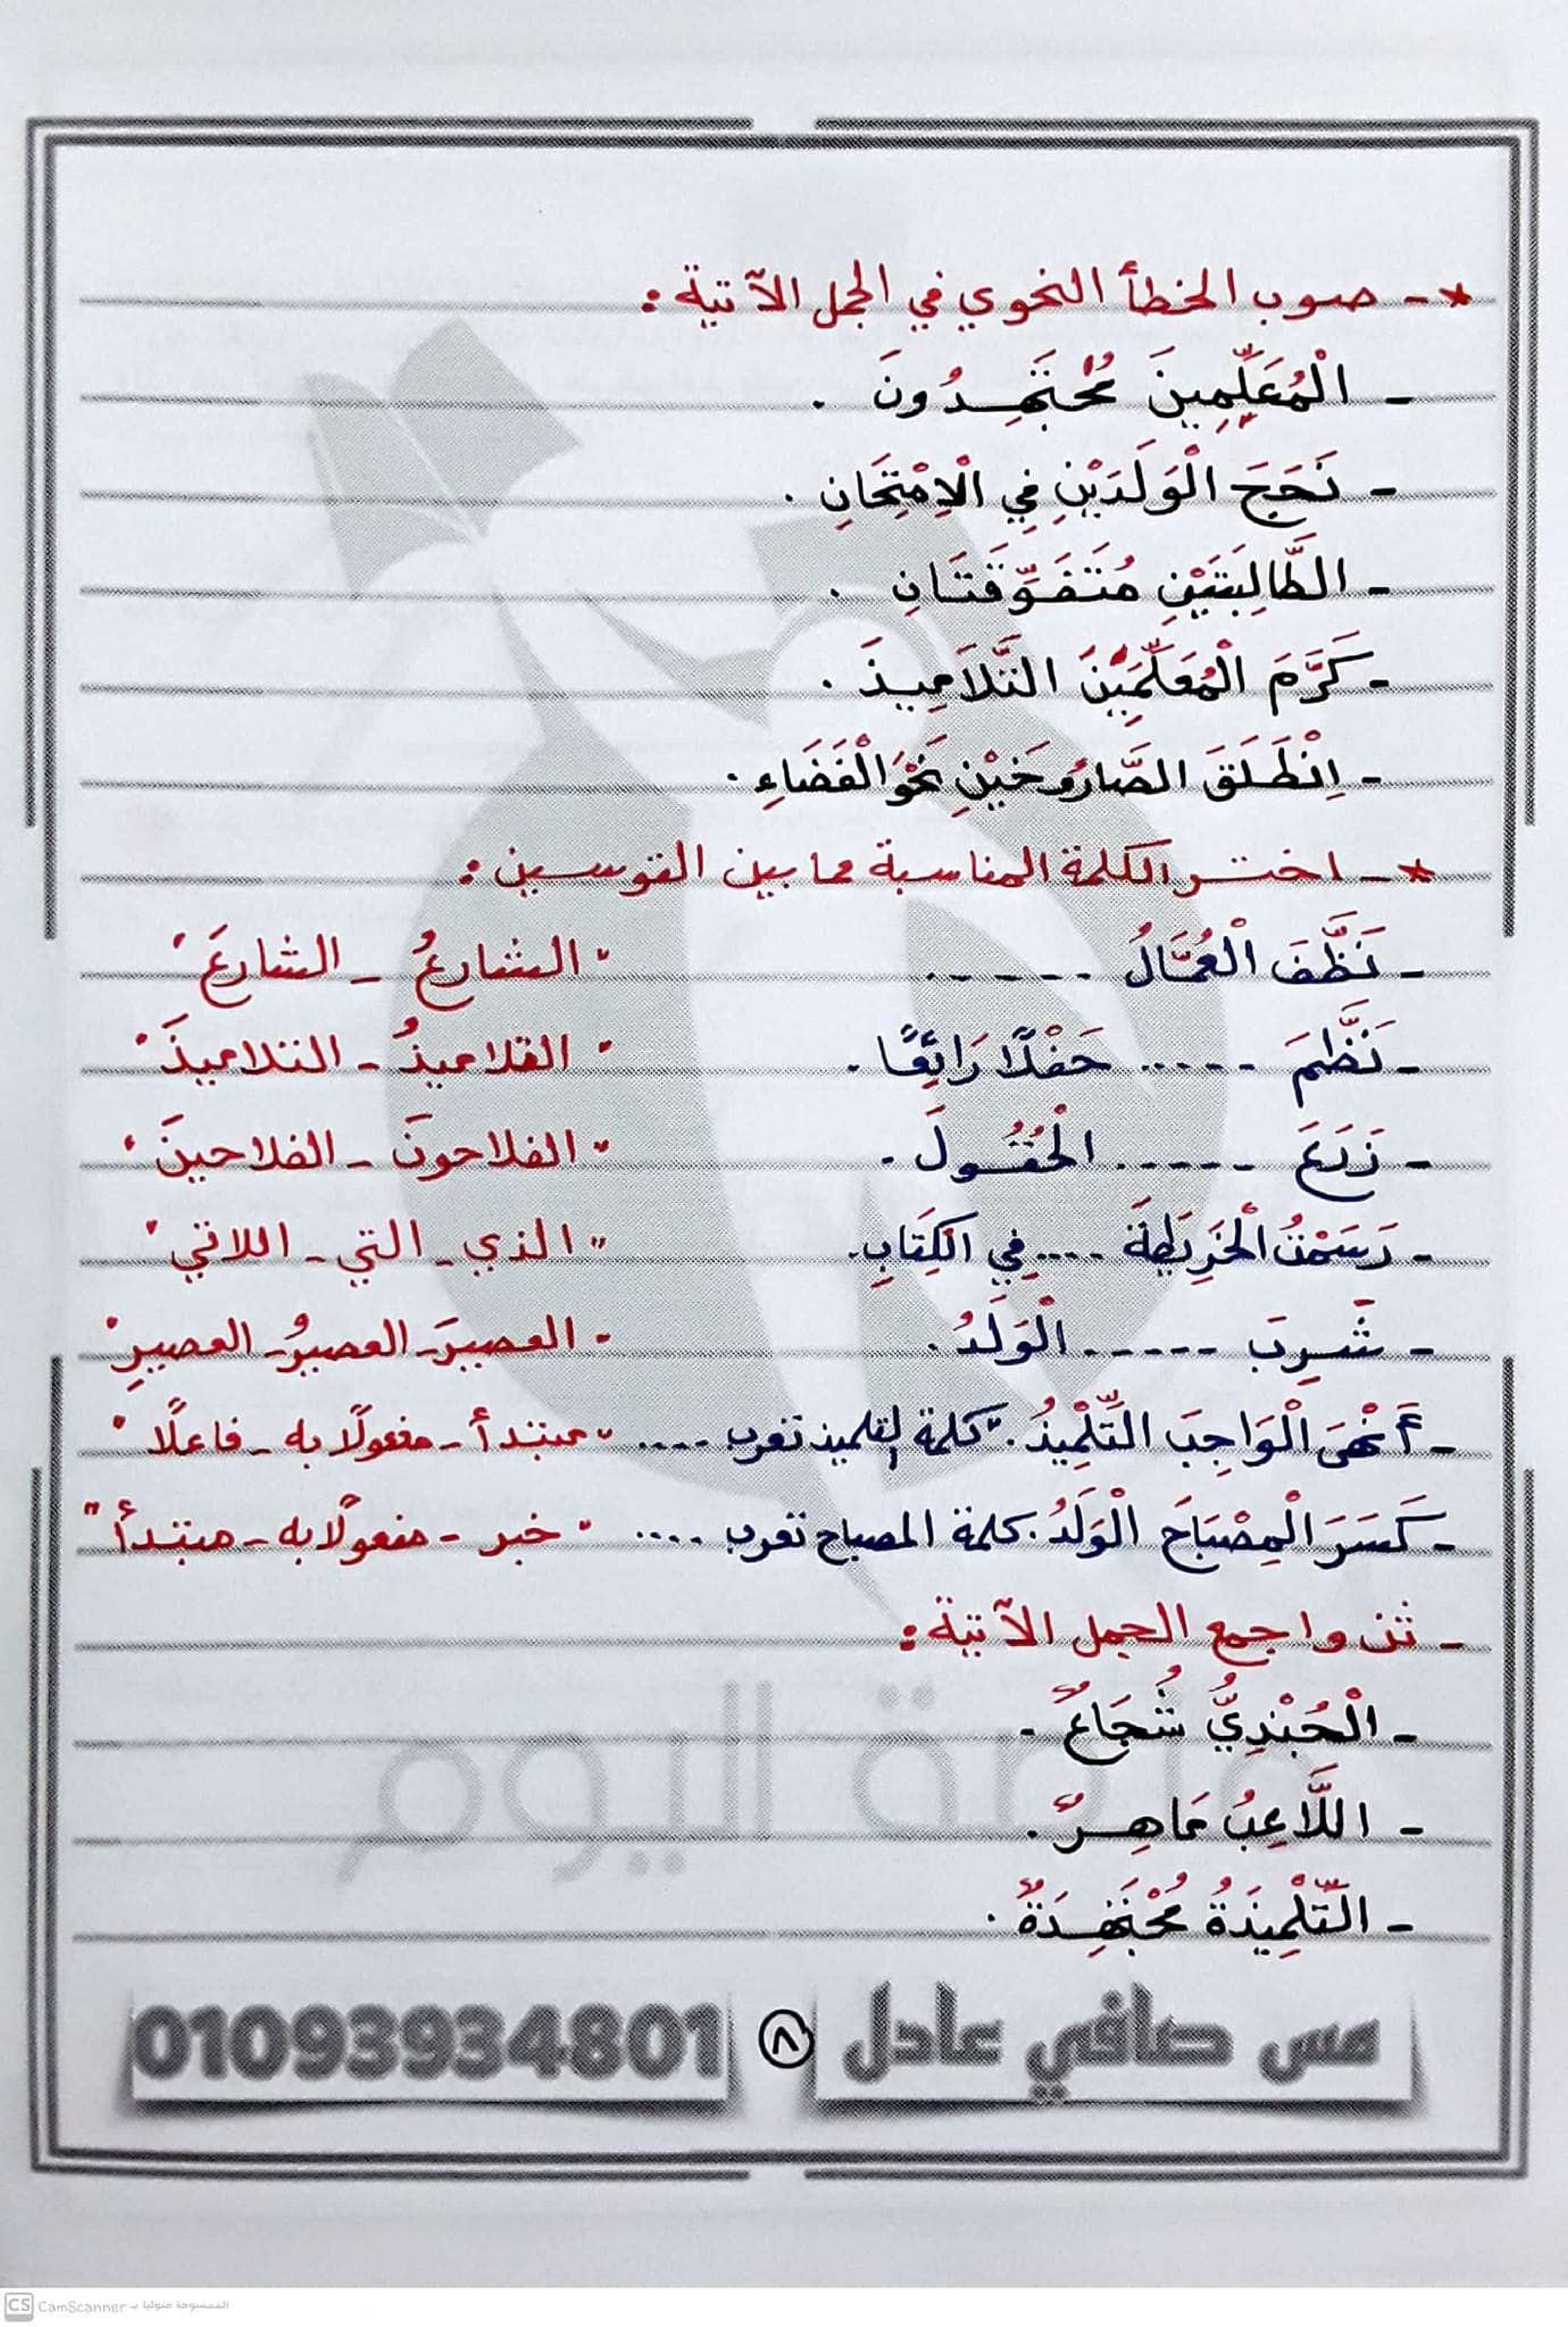 * - صوب الخطأ النحوي في الجمل الآتية :
- الْمُعَلِّمِينَ مُجْتَهِدُونَ .
- نَجَحَ الْوَلَدَيْنِ فِي الْاِمْتِحَانِ .
- الطَّالِبَتَيْنِ مُتَفَوِّقَتَانِ .
- كَرَّمَ الْمُعَلِّمَيْنِ التَّلَامِيذَ .
- اِنْطَلَقَ الصَّارُوخَيْنِ نَحْوَ الْفَضَاءِ .
* - اختر الكلمة المناسبة مما بين القوسين :
- نَظَّفَ الْعُمَّالُ ...... " الشارعُ - الشارعَ "
- نَظَّمَ ...... حَفْلًا رَائِعًا . " التلاميذُ - التلاميذَ "
- زَرَعَ ...... الْحُقُولَ . " الفلاحونَ - الفلاحينَ "
- رَسَمْتُ الْخَرِيطَةَ .... فِي الْكِتَابِ . " الذي - التي - اللاتي "
- شَرِبَ ...... الْوَلَدُ . " العصيرَ - العصيرُ - العصيرِ "
- أَنْهَى الْوَاجِبَ التِّلْمِيذُ . " كلمة التلميذ تعرب .... " مبتدأ - مفعولًا به - فاعلًا "
- كَسَرَ الْمِصْبَاحَ الْوَلَدُ . كلمة المصباح تعرب .... " خبر - مفعولًا به - مبتدأ "
- ثن واجمع الجمل الآتية :
- الْجُنْدِيُّ شُجَاعٌ .
- اللَّاعِبُ مَاهِرٌ .
- التِّلْمِيذَةُ مُجْتَهِدَةٌ .
مس صافي عادل ٨ 01093934801
الممسوحة ضوئيا بـ CamScanner
CS